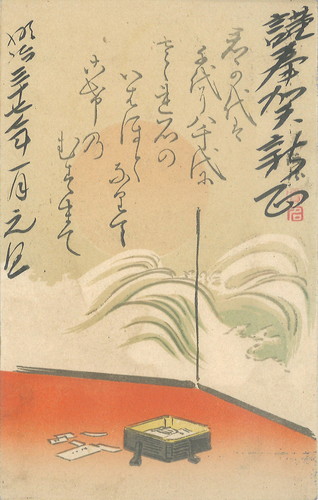 謹奉賀新正
君が代は
千代に八千代に
さゞれ石の
いはほと
なりて
こけの
むすまて
明治三十七年一月元旦